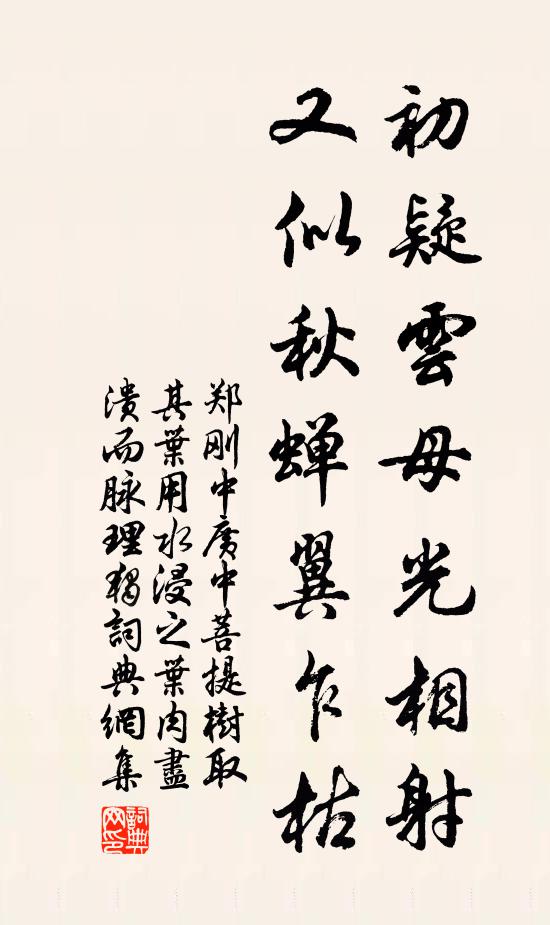 初疑雲母光相射
又似秋蝉翼乍枯
郑刚中廣中菩提樹取
其葉用水浸之葉肉盡
潰而脉理獨詞典網集
詞典
网印